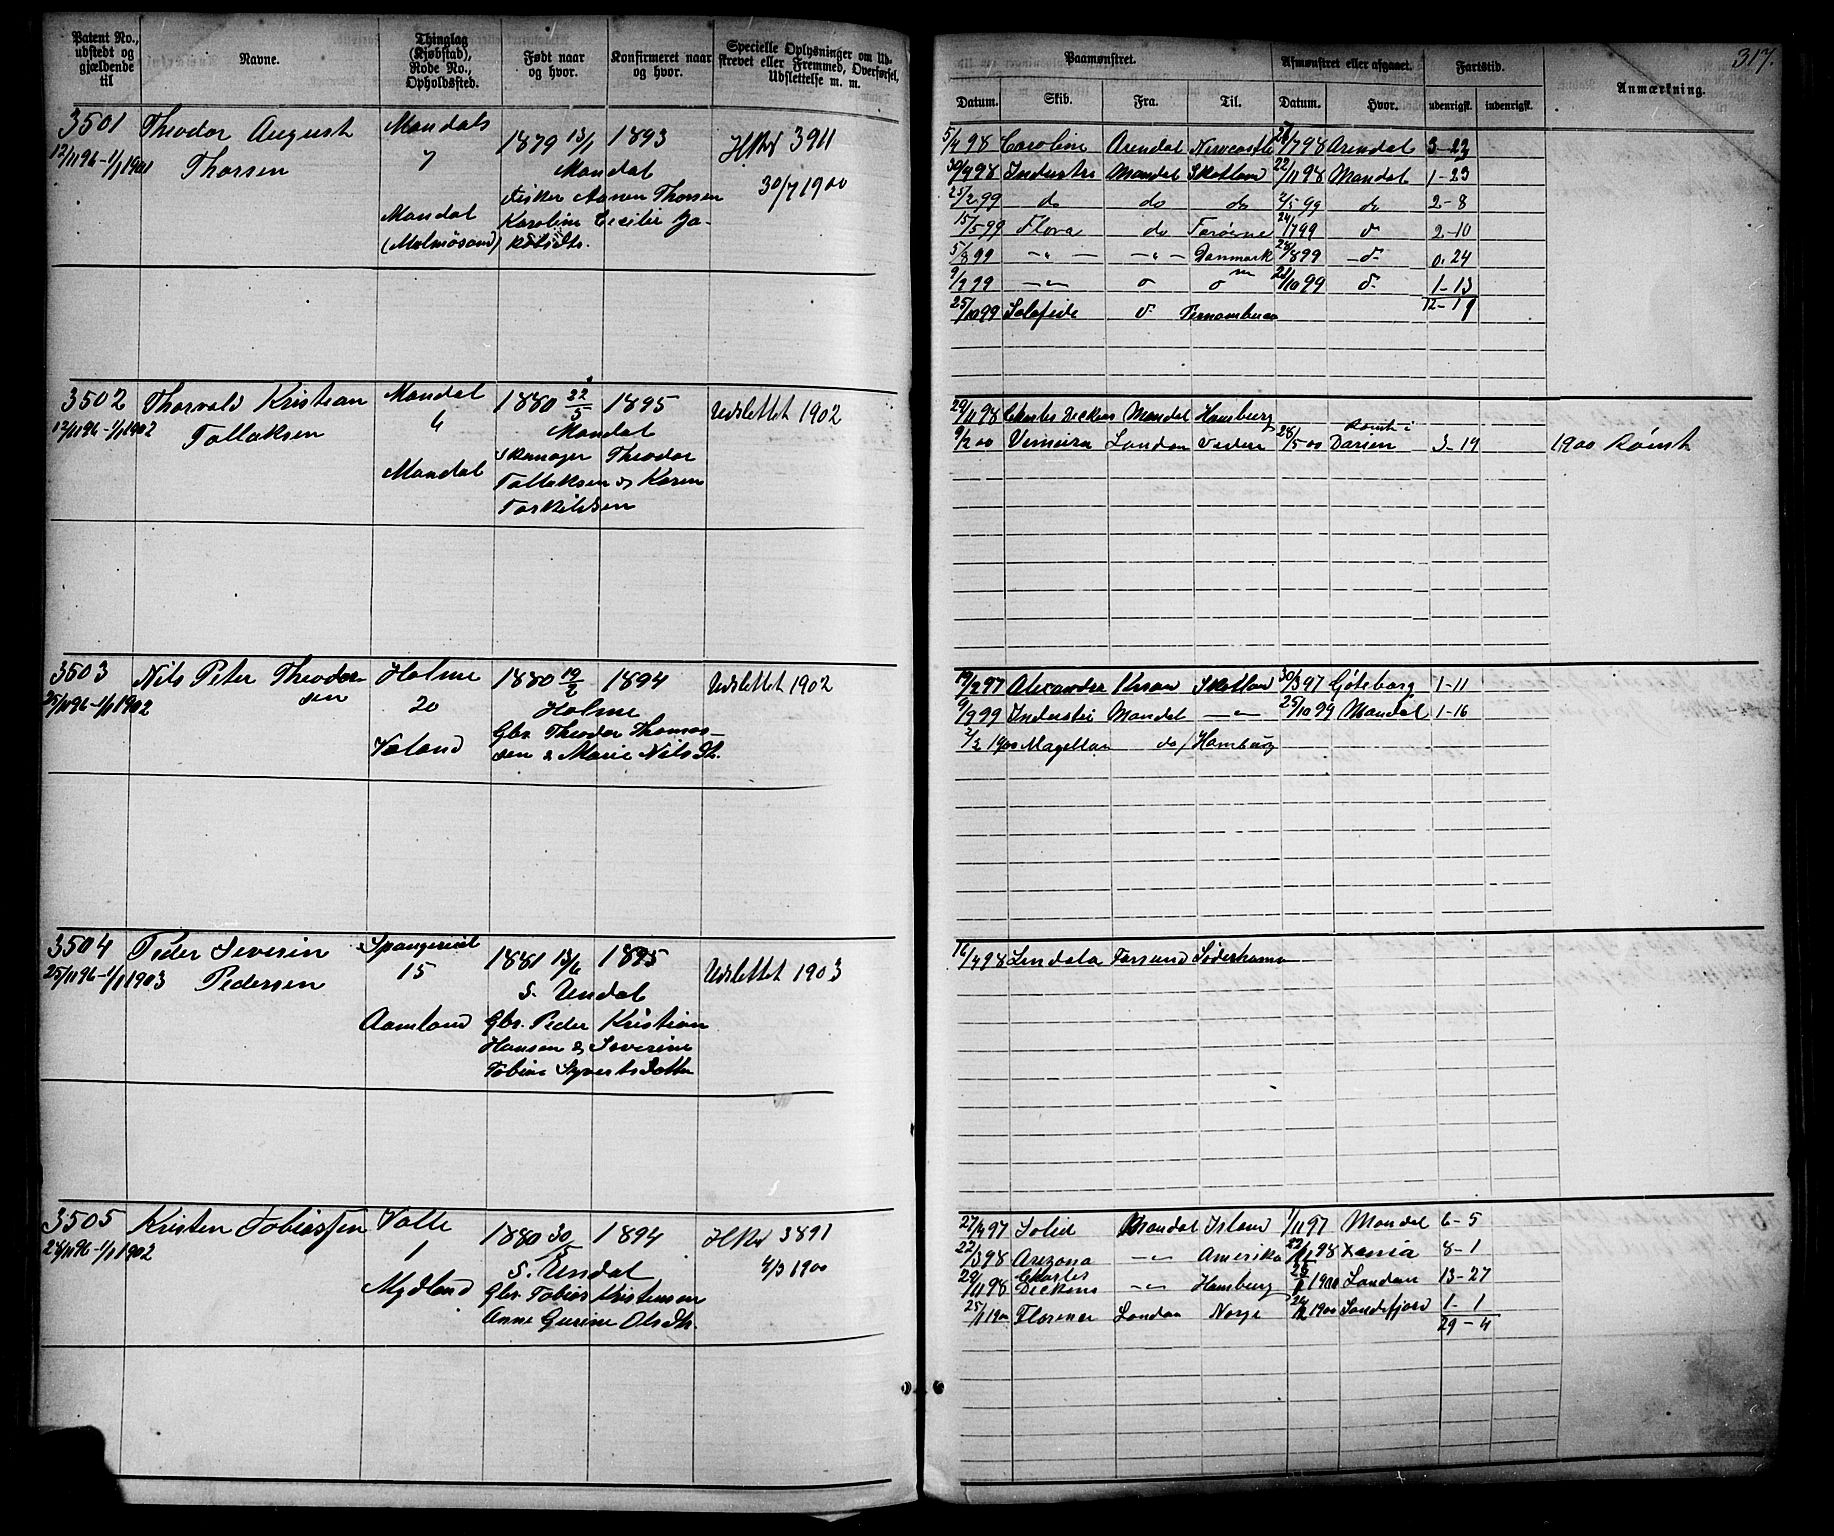 Patent No., udstedt og gjældende til
Navne.
Thinglag (Kjøbstad), Rode No., Opholdssted.
Født naar og hvor.
Konfirmeret naar og hvor.
Specielle Oplysninger om Udskrevet eller Fremmed, Overførsel, Udslettelse m. m.
Paamønstret.
Afmønstret eller afgaaet.
Fartstid.
Anmærkning.
317.
Datum.
Skib.
Fra.
Til.
Datum.
Hvor.
udenrigsk.
indenrigsk.
3501
12/11 96-1/1 1901
Theodor August
Thorsen
Mandals
7
Mandal
(Malmøsand)
1879 13/1 1893
Mandal
Fisker Aanen Thorsen
Karoline Cecilie Ja-
kobsdtr.
HRv 3911
30/7 1900
5/4 98 Caroline Arendal Newcastle 28/7 98 Arendal 3-23
30/9 98 Industri Mandal Skotland 22/11 98 Mandal 1-23
25/2 99 do do do 2/5 99 do 2-8
15/5 99 Flora do Færøerne 24/7 99 do 2-10
5/8 99 -"- -"- Danmark 28/8 99 -do- 0.24
9/9 99 -"- do do 21/10 99 do 1-13
12-11
25/10 99 Solafide do Pernambuco
3502
12/11 96-1/1 1902
Thorvald Kristian
Tallaksen
Mandal
4
Mandal
1880 22/5 1895
Mandal
Skomager Theodor
Tallaksen og Karen
Torkildsen
Udslettet 1902
29/11 98 Charles Dickens Mandal Hamburg
9/2 00 Vimeira London videre 28/5 00 Rømt i Darien 3-19
1900 Rømt
3503
25/11 96-1/1 1902
Nils Peter Theodor
sen
Holme
20
Valand
1880 19/2 1894
Holme
Gbr. Theodor Thomas-
sen & Marie Nilsdt.
Udslettet 1902
19/2 97 Alexandra Krsan Skotlan 30/3 97 Göteborg 1-11
9/9 99 Industri Mandal -"- 25/10 99 Mandal 1-16
2/2 1900 Magellan do Hamburg
3504
25/11 96-1/1 1903
Peder Severin
Pedersen
Spangereid
15
Aamland
1881 13/6 1895
S. Undal
Gbr. Peder Kristian
Hansen & Severine
Tobine Syvertsdatter
Udslettet 1903
16/4 98 Lendala Farsund Söderhamn
3505
28/11 96-1/1 1902
Kristen Tobiassen
Valle
1
Mydland
1880 30/5 1894
S. Undal
Gbr. Tobias Kristensen
Anne Gurine Olsdtr.
HRv 3891
4/3 1900
27/4 97 Solid Mandal Island 1/11 97 Mandal 6-5
22/3 98 Arizona -"- Amerika 22/11 98 Xania 8-1
29/11 98 Charles Dickens -"- Hamburg 1900 London 13-27
25/1 1900 Florence London Norge 26/2 1900 Sandefjord 1-1
29-4